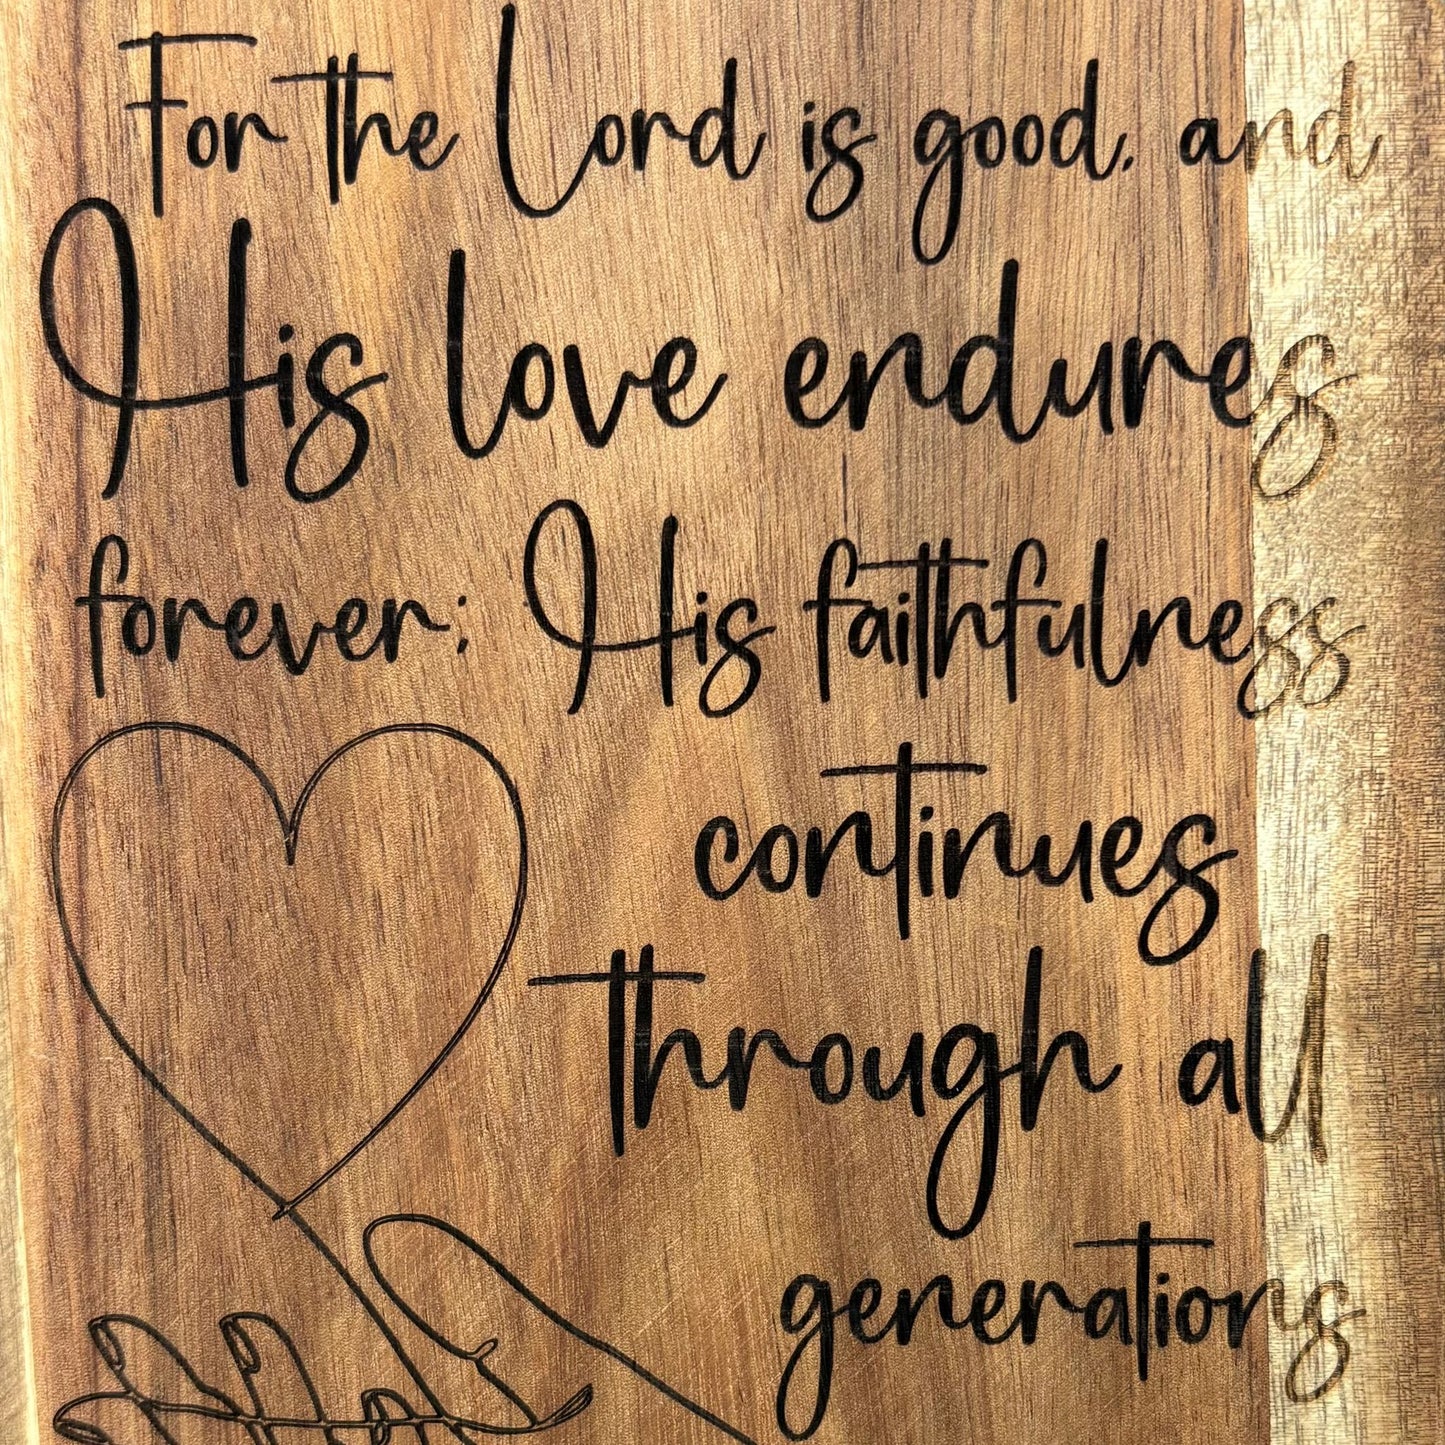 For the Lord is good. and
His love endures
forever; His faithfulness
continues
through all
generations